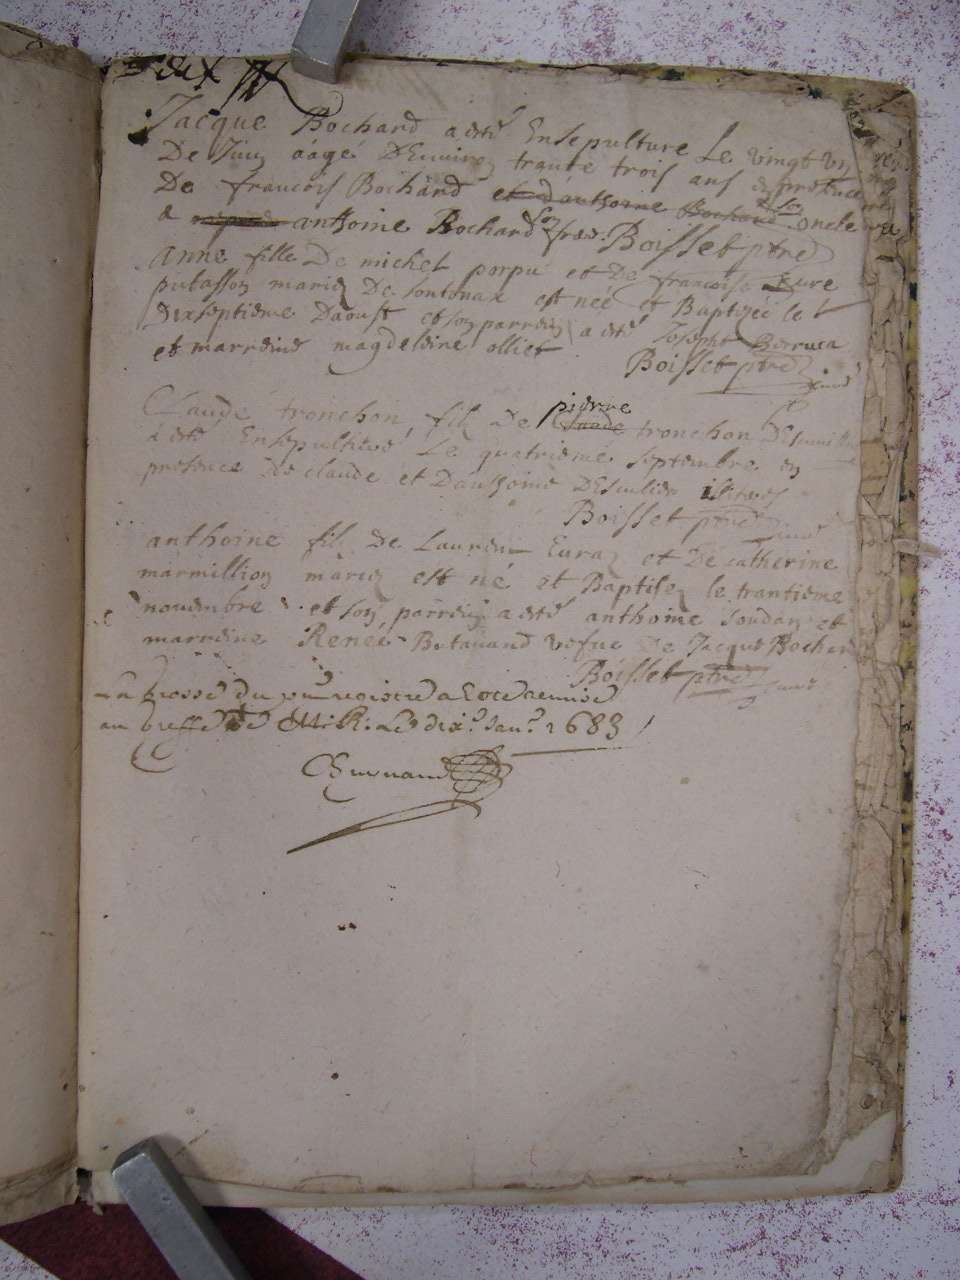 dix
Jacque Bochard a esté Ensepulturé Le vingt un
De Juin aagé D'Enuiron trante trois ans en presence
De francois Bochard et d'anthoine Bochard son oncle
a anthoine Bochard son frere. Boisset ptre
anne fille De michel porpu et De francoise
putasson mariez De sontonax est née et Baptizée le
Dixseptieme Daoust et son parrein a esté Joseph Borruca
et marreine magdeleine olliet Boisset ptre
Claude tronchon, filz De pierre tronchon
a esté Ensepulturé Le quatrieme septembre en
presence De claude et Danthoine
Boisset ptre
anthoine filz De Laurent Euraz et De catherine
marmillion mariez est né et Baptisez le trantieme
nouembre et son parrein a esté anthoine soudan et
marreine Renée Butauand vefue De Jacque Bochar
Boisset ptre
La grosse du pnt registre a esté remise
au Greffe Le dix.e Jan.r 1683